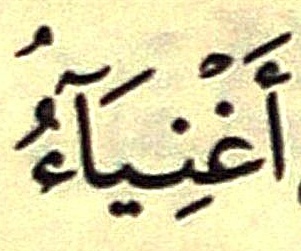 أَغْنِيَآءُ